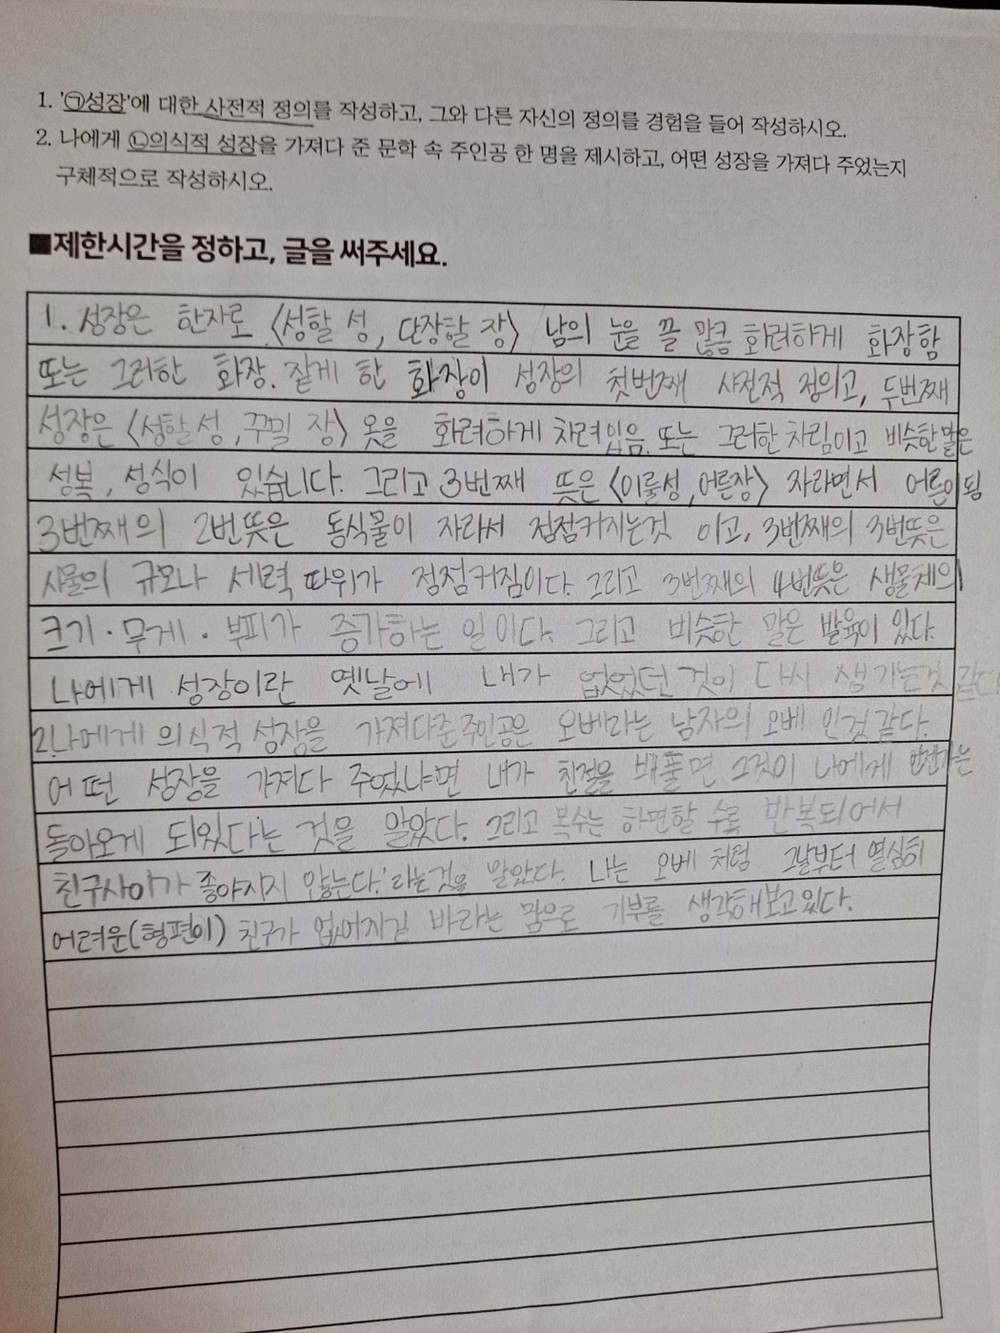 1. '㉠성장'에 대한 사전적 정의를 작성하고, 그와 다른 자신의 정의를 경험을 들어 작성하시오.
2. 나에게 ㉡의식적 성장을 가져다 준 문학 속 주인공 한 명을 제시하고, 어떤 성장을 가져다 주었는지
구체적으로 작성하시오.
■제한시간을 정하고, 글을 써주세요.
1. 성장은 한자로 〈성할 성, 단장할 장〉 남의 눈을 끌 많큼 화려하게 화장함
또는 그러한 화장. 짙게 한 화장이 성장의 첫번째 사전적 정의고, 두번째
성장은 〈성할성, 꾸밀 장〉 옷을 화려하게 차려입음. 또는 그러한 차림이고 비슷한말은
성복, 성식이 있습니다. 그리고 3번째 뜻은 〈이룰성, 어른장〉 자라면서 어른이됨
3번째의 2번뜻은 동식물이 자라서 점점커지는것 이고, 3번째의 3번뜻은
사물의 규모나 세력 따위가 점점커짐이다. 그리고 3번째의 4번뜻은 생물체의
크기·무게·부피가 증가하는 일이다. 그리고 비슷한 말은 발육이 있다.
나에게 성장이란 옛날에 내가 없었던 것이 다시 생기는것 같다
2.나에게 의식적 성장을 가져다준주인공은 오베라는 남자의 오베 인것 같다.
어떤 성장을 가져다 주었냐면 내가 친절을 배풀면 그것이 나에게 언젠가는
돌아오게 되있다는 것을 알았다. 그리고 복수는 하면할 수록 반복되어서
친구사이가 좋아지지 않는다.'라는것을 알았다. 나는 오베 처럼 그날부터 열심히
어려운(형편이) 친구가 없어지길 바라는 맘으로 기부를 생각해보고있다.